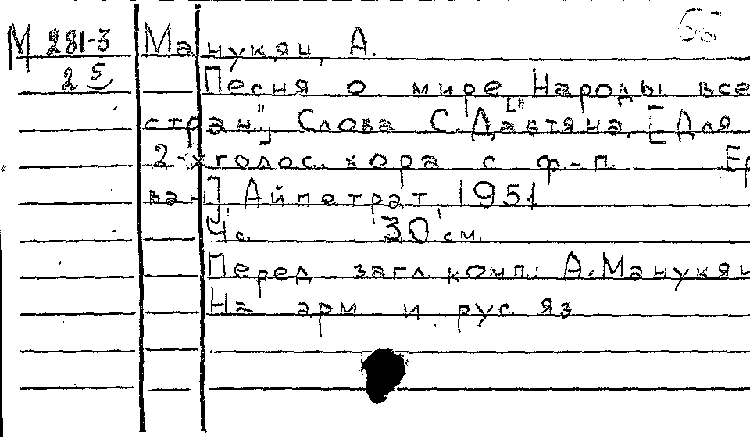 М 281-3 Манукян, А.
25 Песня о мире. ["Народы всех
стран"] Слова С. Давтяна. [Для
2-х голос. хора с ф-п. Ер
ва-], Айпетрат, 1951
4 с. 30 см.
Перед загл. комп.: А. Манукян
На арм. и рус. яз.